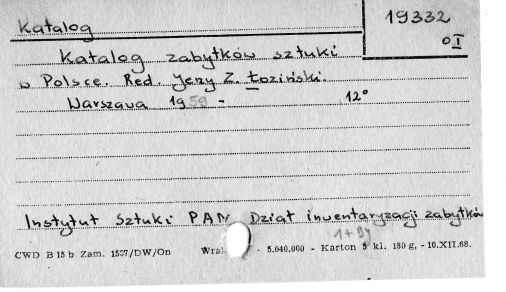 Katalog
19332
O I
Katalog zabytków sztuki
w Polsce. Red. Jerzy Z. Łoziński.
Warszawa 1959 - 12°
Instytut Sztuki PAN Dział inwentaryzacji zabytków
1+94
CWD B 15 b Zam. 1537/DW/On - 5.040.000 - Karton 5 kl. 180 g, - 10.XII.68.